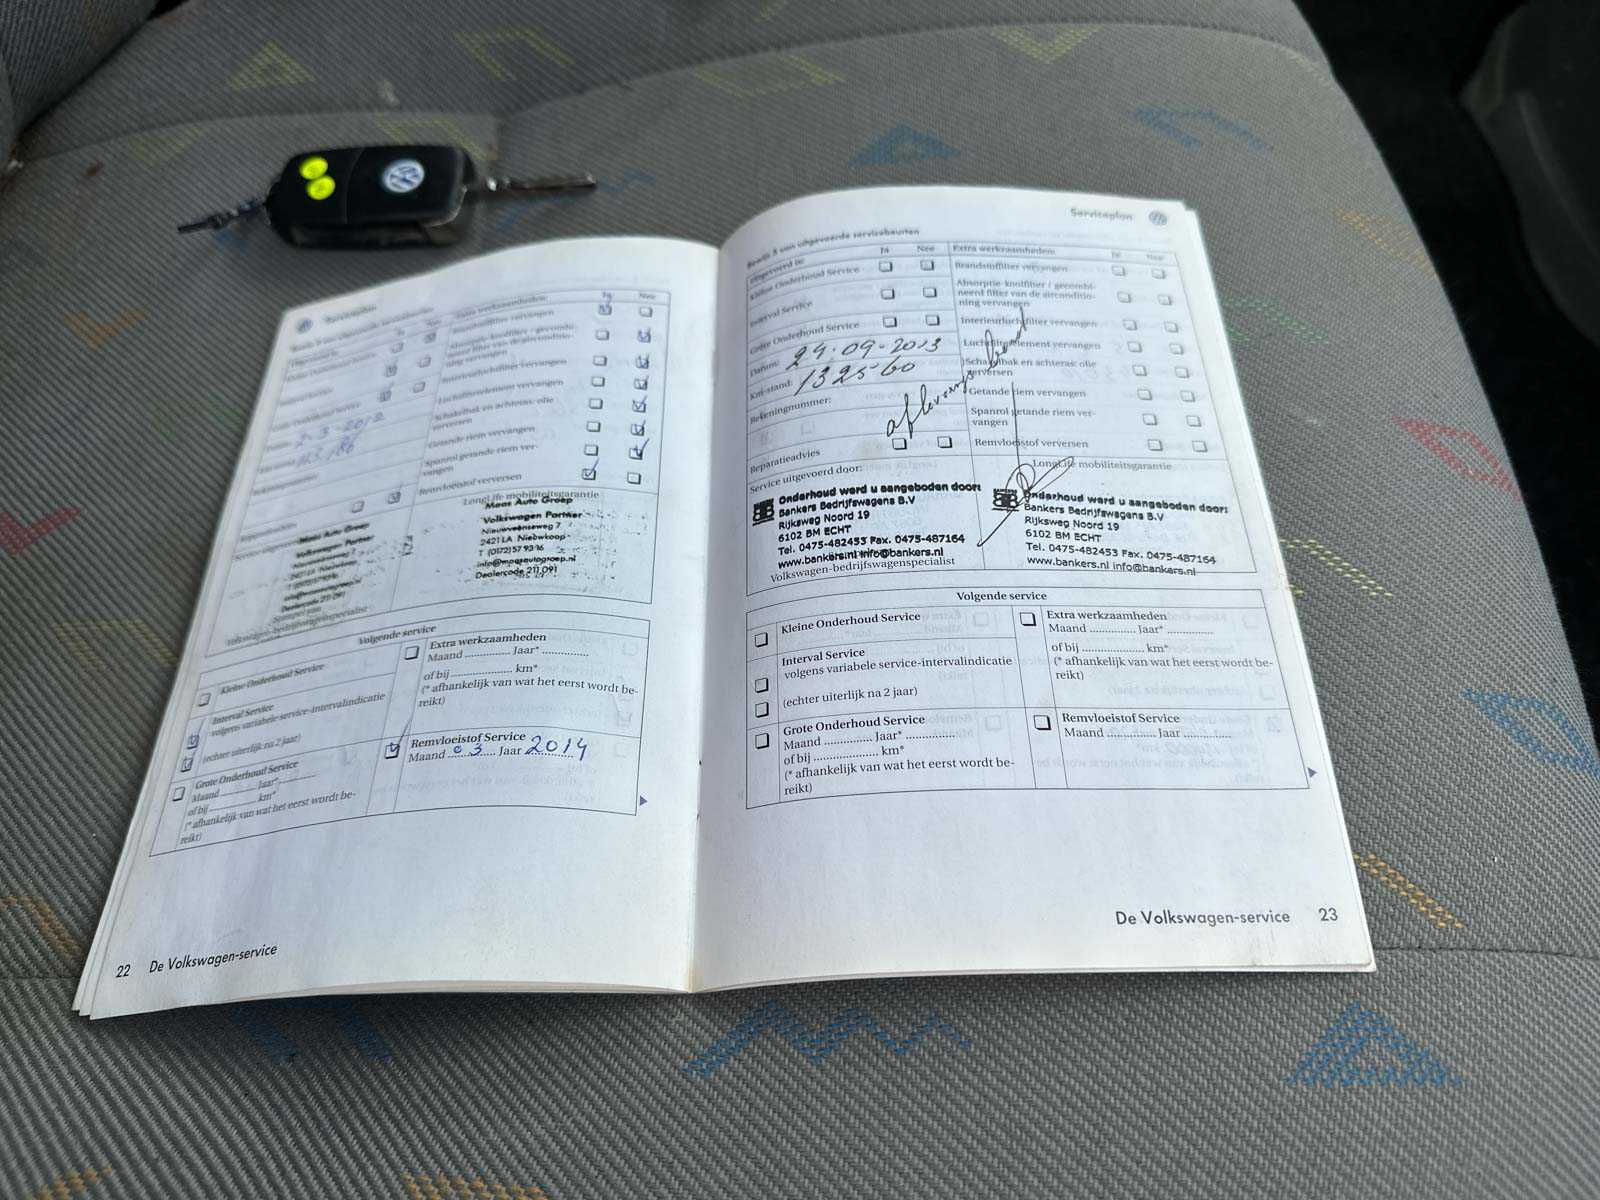 Serviceplan
Extra werkzaamheden: Ja Nee
Brandstoffilter vervangen
Absorptie-koolfilter / gecombi-
neerd filter van de airconditio-
ning vervangen
Interieurluchtfilter vervangen
Luchtfilterelement vervangen
Schakelbak en achteras: olie
verversen
Getande riem vervangen
Spanrol getande riem ver-
vangen
Remvloeistof verversen
LongLife mobiliteitsgarantie
Maas Auto Groep
Volkswagen Partner
Nieuwveenseweg 7
2421 LA Nieuwkoop
T (0172) 57 93 16
info@maasautogroep.nl
Dealercode 211 091
Volkswagen-bedrijfswagenspecialist
Volgende service
Kleine Onderhoud Service
Interval Service
volgens variabele service-intervalindicatie
(echter uiterlijk na 2 jaar)
Grote Onderhoud Service
Maand .............. Jaar* ..............
of bij .................... km*
(* afhankelijk van wat het eerst wordt be-
reikt)
Extra werkzaamheden
Maand .............. Jaar* ..............
of bij .................... km*
(* afhankelijk van wat het eerst wordt be-
reikt)
Remvloeistof Service
Maand 03 Jaar 2014
22 De Volkswagen-service
Serviceplan
Bewijs 3 van uitgevoerde servicebeurten
Uitgevoerd is: Ja Nee
Kleine Onderhoud Service
Interval Service
Grote Onderhoud Service
Datum: 24-09-2013
Km-stand: 132560
Rekeningnummer:
afleveringsbeurt
Reparatieadvies
Service uitgevoerd door:
Onderhoud werd u aangeboden door:
Bankers Bedrijfswagens B.V
Rijksweg Noord 19
6102 BM ECHT
Tel. 0475-482453 Fax. 0475-487164
www.bankers.nl info@bankers.nl
Volkswagen-bedrijfswagenspecialist
Extra werkzaamheden: Ja Nee
Brandstoffilter vervangen
Absorptie-koolfilter / gecombi-
neerd filter van de airconditio-
ning vervangen
Interieurluchtfilter vervangen
Luchtfilterelement vervangen
Schakelbak en achteras: olie
verversen
Getande riem vervangen
Spanrol getande riem ver-
vangen
Remvloeistof verversen
LongLife mobiliteitsgarantie
Onderhoud werd u aangeboden door:
Bankers Bedrijfswagens B.V
Rijksweg Noord 19
6102 BM ECHT
Tel. 0475-482453 Fax. 0475-487164
www.bankers.nl info@bankers.nl
Volgende service
Kleine Onderhoud Service
Interval Service
volgens variabele service-intervalindicatie
(echter uiterlijk na 2 jaar)
Grote Onderhoud Service
Maand .............. Jaar* ..............
of bij .................... km*
(* afhankelijk van wat het eerst wordt be-
reikt)
Extra werkzaamheden
Maand .............. Jaar* ..............
of bij .................... km*
(* afhankelijk van wat het eerst wordt be-
reikt)
Remvloeistof Service
Maand .............. Jaar ..............
De Volkswagen-service 23